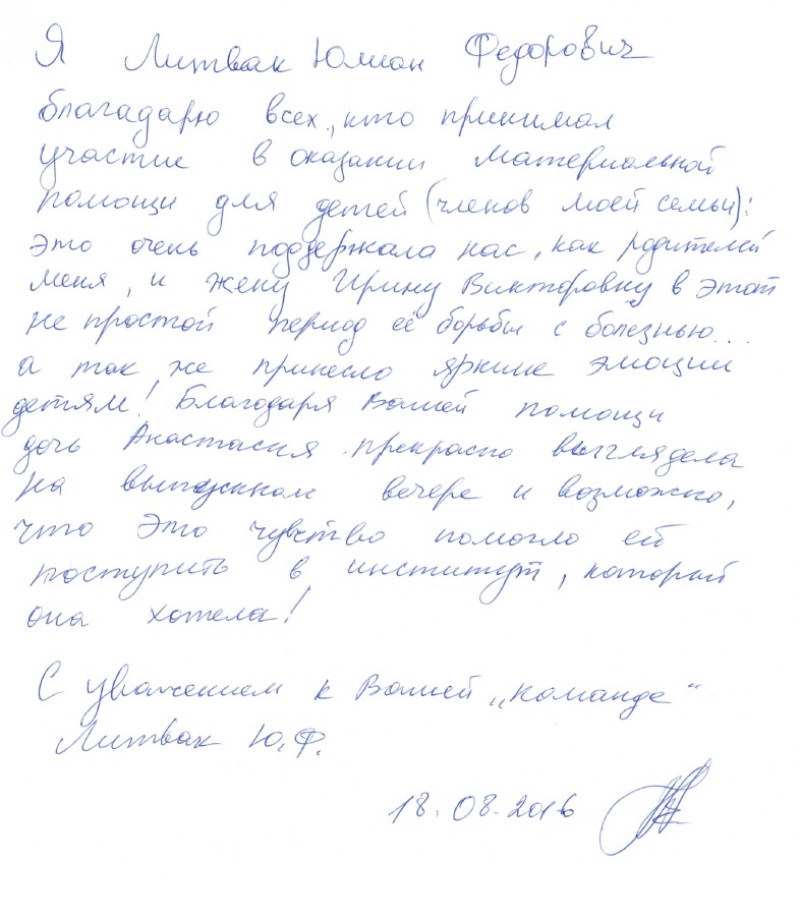 Я Литвак Юлиан Федорович
благадарю всех, кто принимал
участие в оказании материальной
помощи для детей (членов моей семьи):
это очень поддержала нас, как родителей
меня, и жену Ирину Викторовну в этот
не простой период её борьбы с болезнью...
а так же принесло яркие эмоции
детям! Благодаря Вашей помощи
дочь Анастасия прекрасно выглядела
на выпускном вечере и возможно,
что это чувство помогло ей
поступить в институт, который
она хотела!
С уважением к Вашей „команде“
Литвак Ю.Ф.
18.08.2016